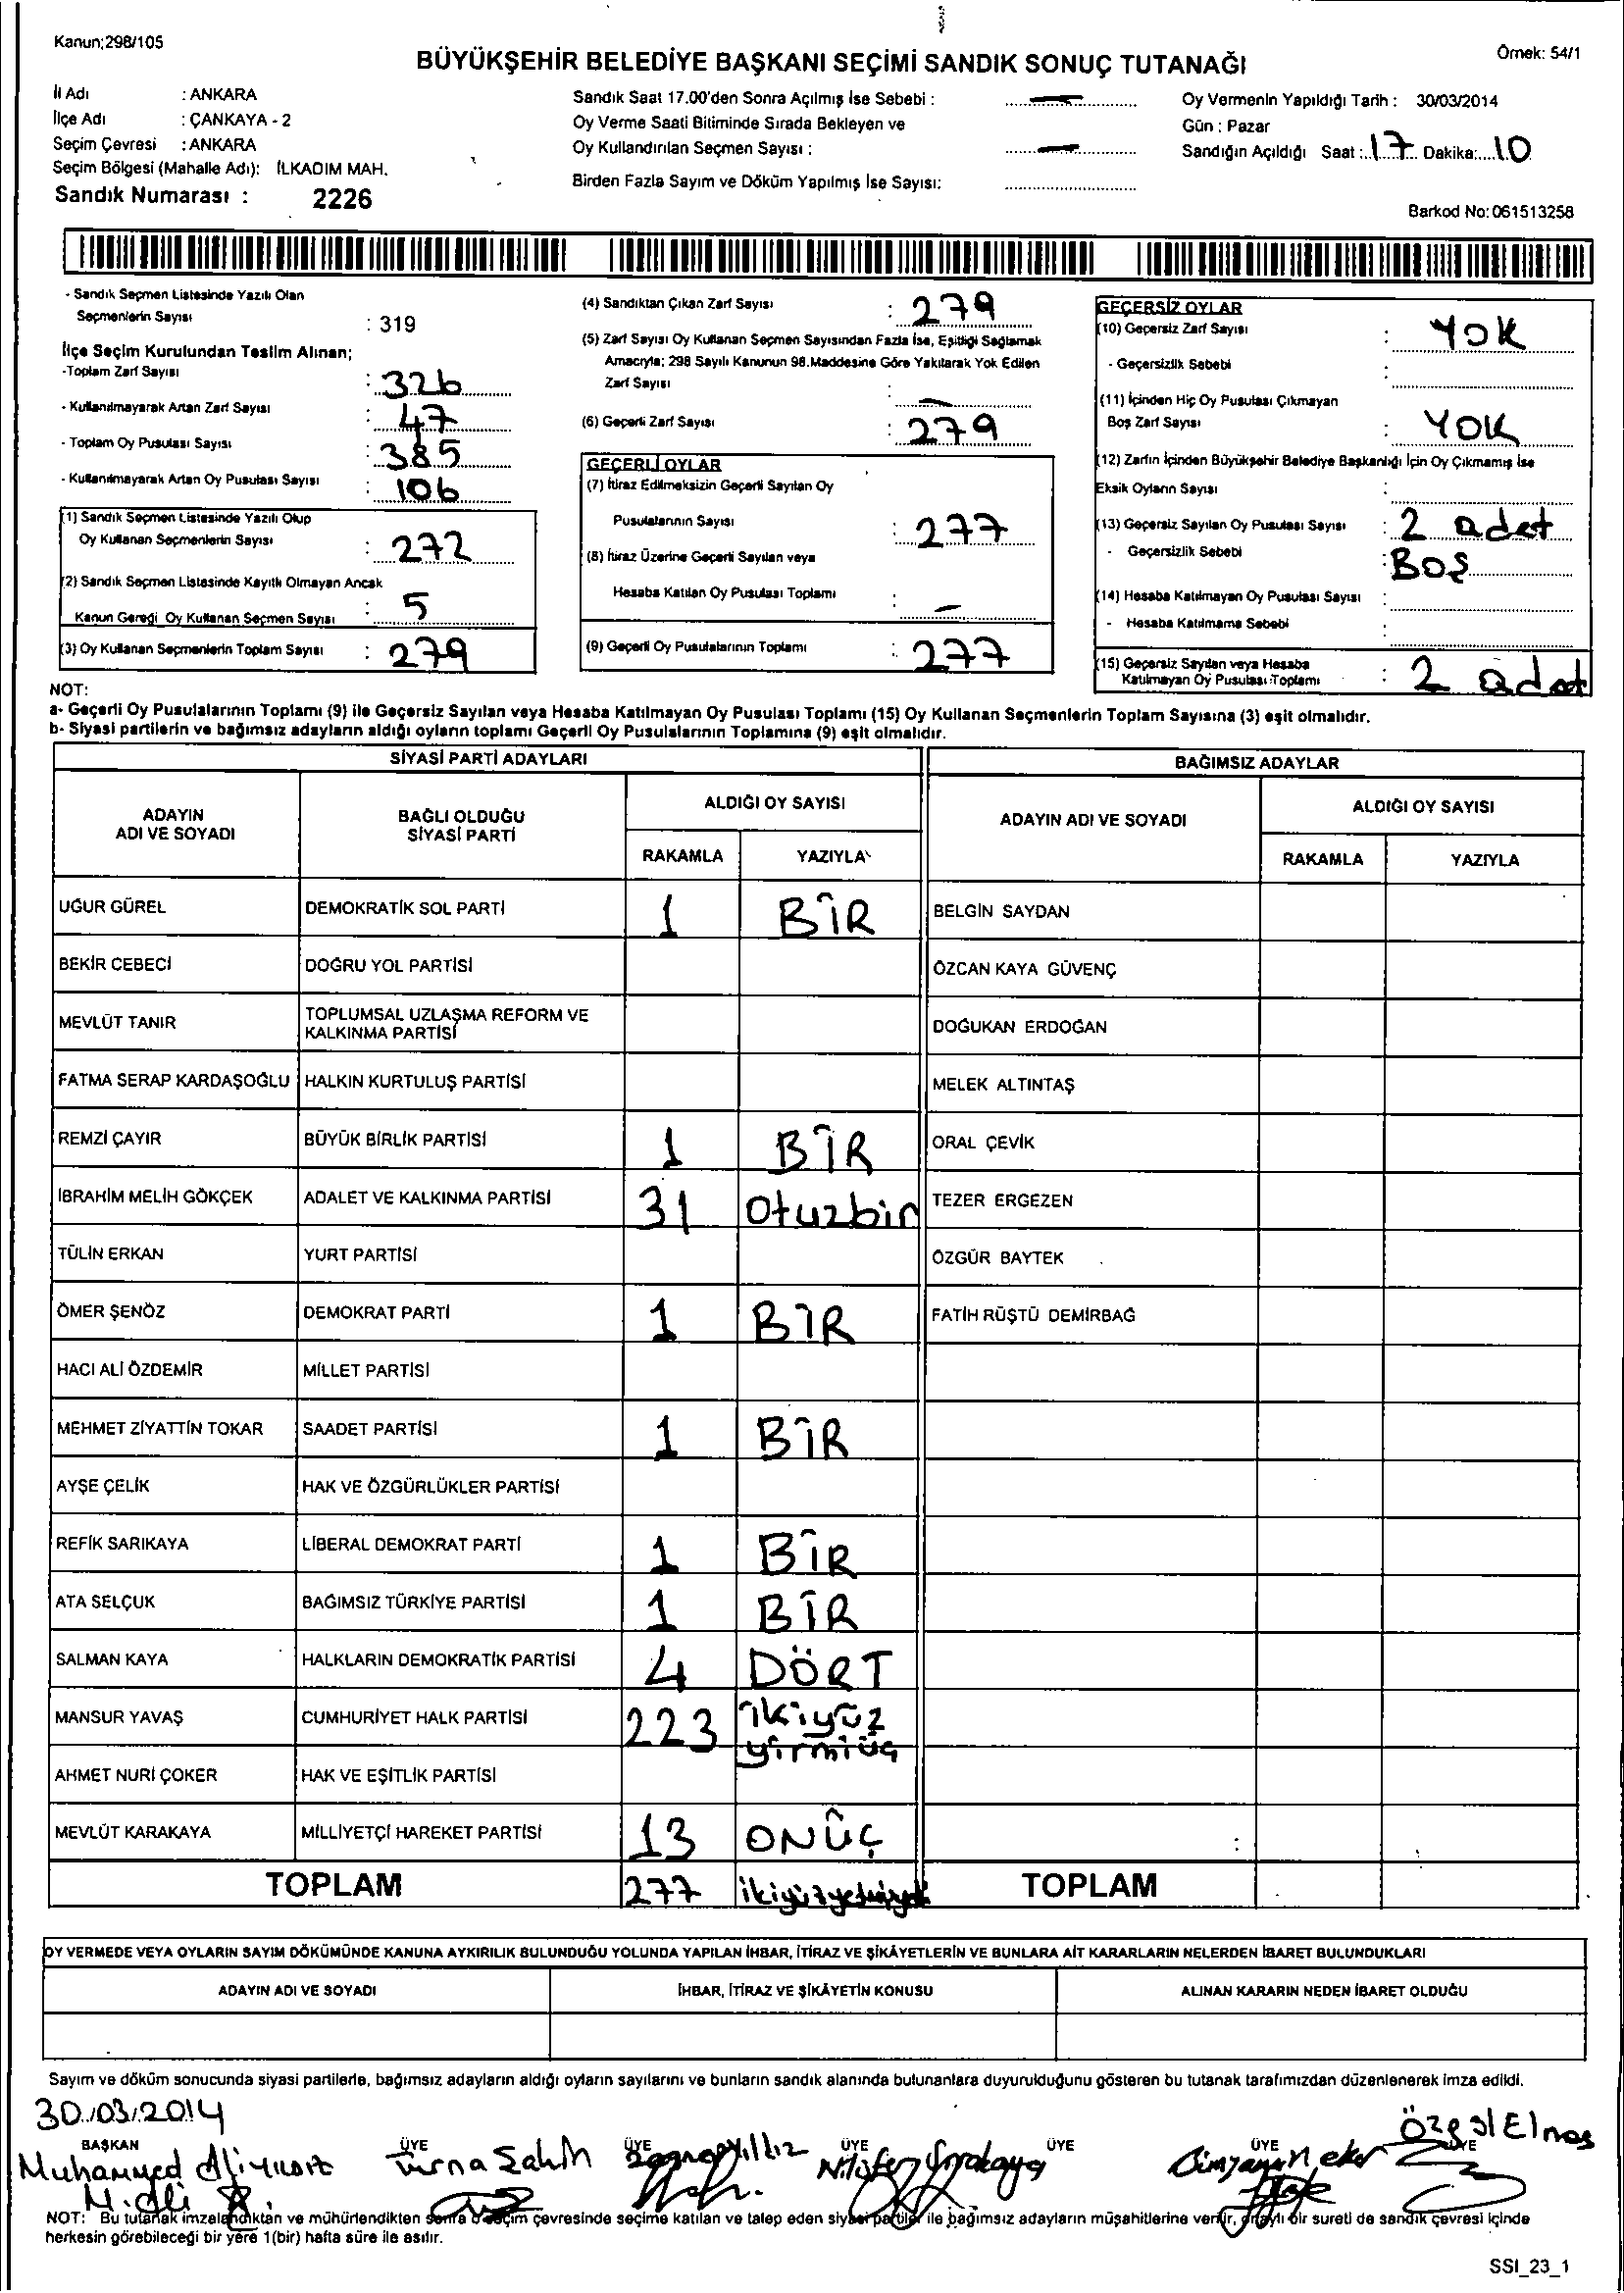 Kanun;298/105
BÜYÜKŞEHİR BELEDİYE BAŞKANI SEÇİMİ SANDIK SONUÇ TUTANAĞI
Örnek: 54/1
İli Adı : ANKARA
İlçe Adı : ÇANKAYA - 2
Seçim Çevresi : ANKARA
Seçim Bölgesi (Mahalle Adı): İLKADIM MAH.
Sandık Numarası : 2226
Sandık Saat 17.00'den Sonra Açılmış İse Sebebi : —
Oy Verme Saati Bitiminde Sırada Bekleyen ve
Oy Kullandırılan Seçmen Sayısı : —
Birden Fazla Sayım ve Döküm Yapılmış İse Sayısı:
Oy Vermenin Yapıldığı Tarih : 30/03/2014
Gün : Pazar
Sandığın Açıldığı Saat : 17 Dakika: 10
Barkod No: 061513258
- Sandık Seçmen Listesinde Yazılı Olan
Seçmenlerin Sayısı : 319
İlçe Seçim Kurulundan Teslim Alınan;
-Toplam Zarf Sayısı : 326
- Kullanılmayarak Artan Zarf Sayısı : 47
- Toplam Oy Pusulası Sayısı : 385
- Kullanılmayarak Artan Oy Pusulası Sayısı : 106
(1) Sandık Seçmen Listesinde Yazılı Olup
Oy Kullanan Seçmenlerin Sayısı : 272
(2) Sandık Seçmen Listesinde Kayıtlı Olmayan Ancak
Kanun Gereği Oy Kullanan Seçmen Sayısı : 5
(3) Oy Kullanan Seçmenlerin Toplam Sayısı : 279
(4) Sandıktan Çıkan Zarf Sayısı : 279
(5) Zarf Sayısı Oy Kullanan Seçmen Sayısından Fazla İse, Eşitliği Sağlamak
Amacıyla; 298 Sayılı Kanunun 98.Maddesine Göre Yakılarak Yok Edilen
Zarf Sayısı : —
(6) Geçerli Zarf Sayısı : 279
GEÇERLİ OYLAR
(7) İtiraz Edilmeksizin Geçerli Sayılan Oy
Pusulalarının Sayısı : 277
(8) İtiraz Üzerine Geçerli Sayılan veya
Hesaba Katılan Oy Pusulası Toplamı : —
(9) Geçerli Oy Pusulalarının Toplamı : 277
GEÇERSİZ OYLAR
(10) Geçersiz Zarf Sayısı : YOK
- Geçersizlik Sebebi :
(11) İçinden Hiç Oy Pusulası Çıkmayan
Boş Zarf Sayısı : YOK
(12) Zarfın İçinden Büyükşehir Belediye Başkanlığı İçin Oy Çıkmamış İse
Eksik Oyların Sayısı :
(13) Geçersiz Sayılan Oy Pusulası Sayısı : 2 adet
- Geçersizlik Sebebi : BOŞ
(14) Hesaba Katılmayan Oy Pusulası Sayısı :
- Hesaba Katılmama Sebebi :
(15) Geçersiz Sayılan veya Hesaba
Katılmayan Oy Pusulası Toplamı : 2 adet
NOT:
a- Geçerli Oy Pusulalarının Toplamı (9) ile Geçersiz Sayılan veya Hesaba Katılmayan Oy Pusulası Toplamı (15) Oy Kullanan Seçmenlerin Toplam Sayısına (3) eşit olmalıdır.
b- Siyasi partilerin ve bağımsız adayların aldığı oyların toplamı Geçerli Oy Pusulalarının Toplamına (9) eşit olmalıdır.
SİYASİ PARTİ ADAYLARI
ADAYIN ADI VE SOYADI BAĞLI OLDUĞU SİYASİ PARTİ ALDIĞI OY SAYISI
RAKAMLA YAZIYLA
UĞUR GÜREL DEMOKRATİK SOL PARTİ 1 BİR
BEKİR CEBECİ DOĞRU YOL PARTİSİ
MEVLÜT TANIR TOPLUMSAL UZLAŞMA REFORM VE KALKINMA PARTİSİ
FATMA SERAP KARDAŞOĞLU HALKIN KURTULUŞ PARTİSİ
REMZİ ÇAYIR BÜYÜK BİRLİK PARTİSİ 1 BİR
İBRAHİM MELİH GÖKÇEK ADALET VE KALKINMA PARTİSİ 31 Otuzbir
TÜLİN ERKAN YURT PARTİSİ
ÖMER ŞENÖZ DEMOKRAT PARTİ 1 BİR
HACI ALİ ÖZDEMİR MİLLET PARTİSİ
MEHMET ZİYATTİN TOKAR SAADET PARTİSİ 1 BİR
AYŞE ÇELİK HAK VE ÖZGÜRLÜKLER PARTİSİ
REFİK SARIKAYA LİBERAL DEMOKRAT PARTİ 1 BİR
ATA SELÇUK BAĞIMSIZ TÜRKİYE PARTİSİ 1 BİR
SALMAN KAYA HALKLARIN DEMOKRATİK PARTİSİ 4 DÖRT
MANSUR YAVAŞ CUMHURİYET HALK PARTİSİ 223 ikiyüz yirmiüç
AHMET NURİ ÇOKER HAK VE EŞİTLİK PARTİSİ
MEVLÜT KARAKAYA MİLLİYETÇİ HAREKET PARTİSİ 13 ONÜÇ
TOPLAM 277 ikiyüzyetmişyedi
BAĞIMSIZ ADAYLAR
ADAYIN ADI VE SOYADI ALDIĞI OY SAYISI
RAKAMLA YAZIYLA
BELGİN SAYDAN
ÖZCAN KAYA GÜVENÇ
DOĞUKAN ERDOĞAN
MELEK ALTINTAŞ
ORAL ÇEVİK
TEZER ERGEZEN
ÖZGÜR BAYTEK
FATİH RÜŞTÜ DEMİRBAĞ
TOPLAM
OY VERMEDE VEYA OYLARIN SAYIM DÖKÜMÜNDE KANUNA AYKIRILIK BULUNDUĞU YOLUNDA YAPILAN İHBAR, İTİRAZ VE ŞİKÂYETLERİN VE BUNLARA AİT KARARLARIN NELERDEN İBARET BULUNDUKLARI
ADAYIN ADI VE SOYADI İHBAR, İTİRAZ VE ŞİKÂYETİN KONUSU ALINAN KARARIN NEDEN İBARET OLDUĞU
Sayım ve döküm sonucunda siyasi partilerle, bağımsız adayların aldığı oyların sayılarını ve bunların sandık alanında bulunanlara duyurulduğunu gösteren bu tutanak tarafımızdan düzenlenerek imza edildi.
30/03/2014
BAŞKAN ÜYE ÜYE ÜYE ÜYE ÜYE ÜYE
Muhammed Şahin Nilüfer
NOT: Bu tutanak imzalandıktan ve mühürlendikten sonra o seçim çevresinde seçime katılan ve talep eden siyasi partiler ile bağımsız adayların müşahitlerine verilir, onaylı bir sureti de sandık çevresi içinde
herkesin görebileceği bir yere 1(bir) hafta süre ile asılır.
SSI_23_1